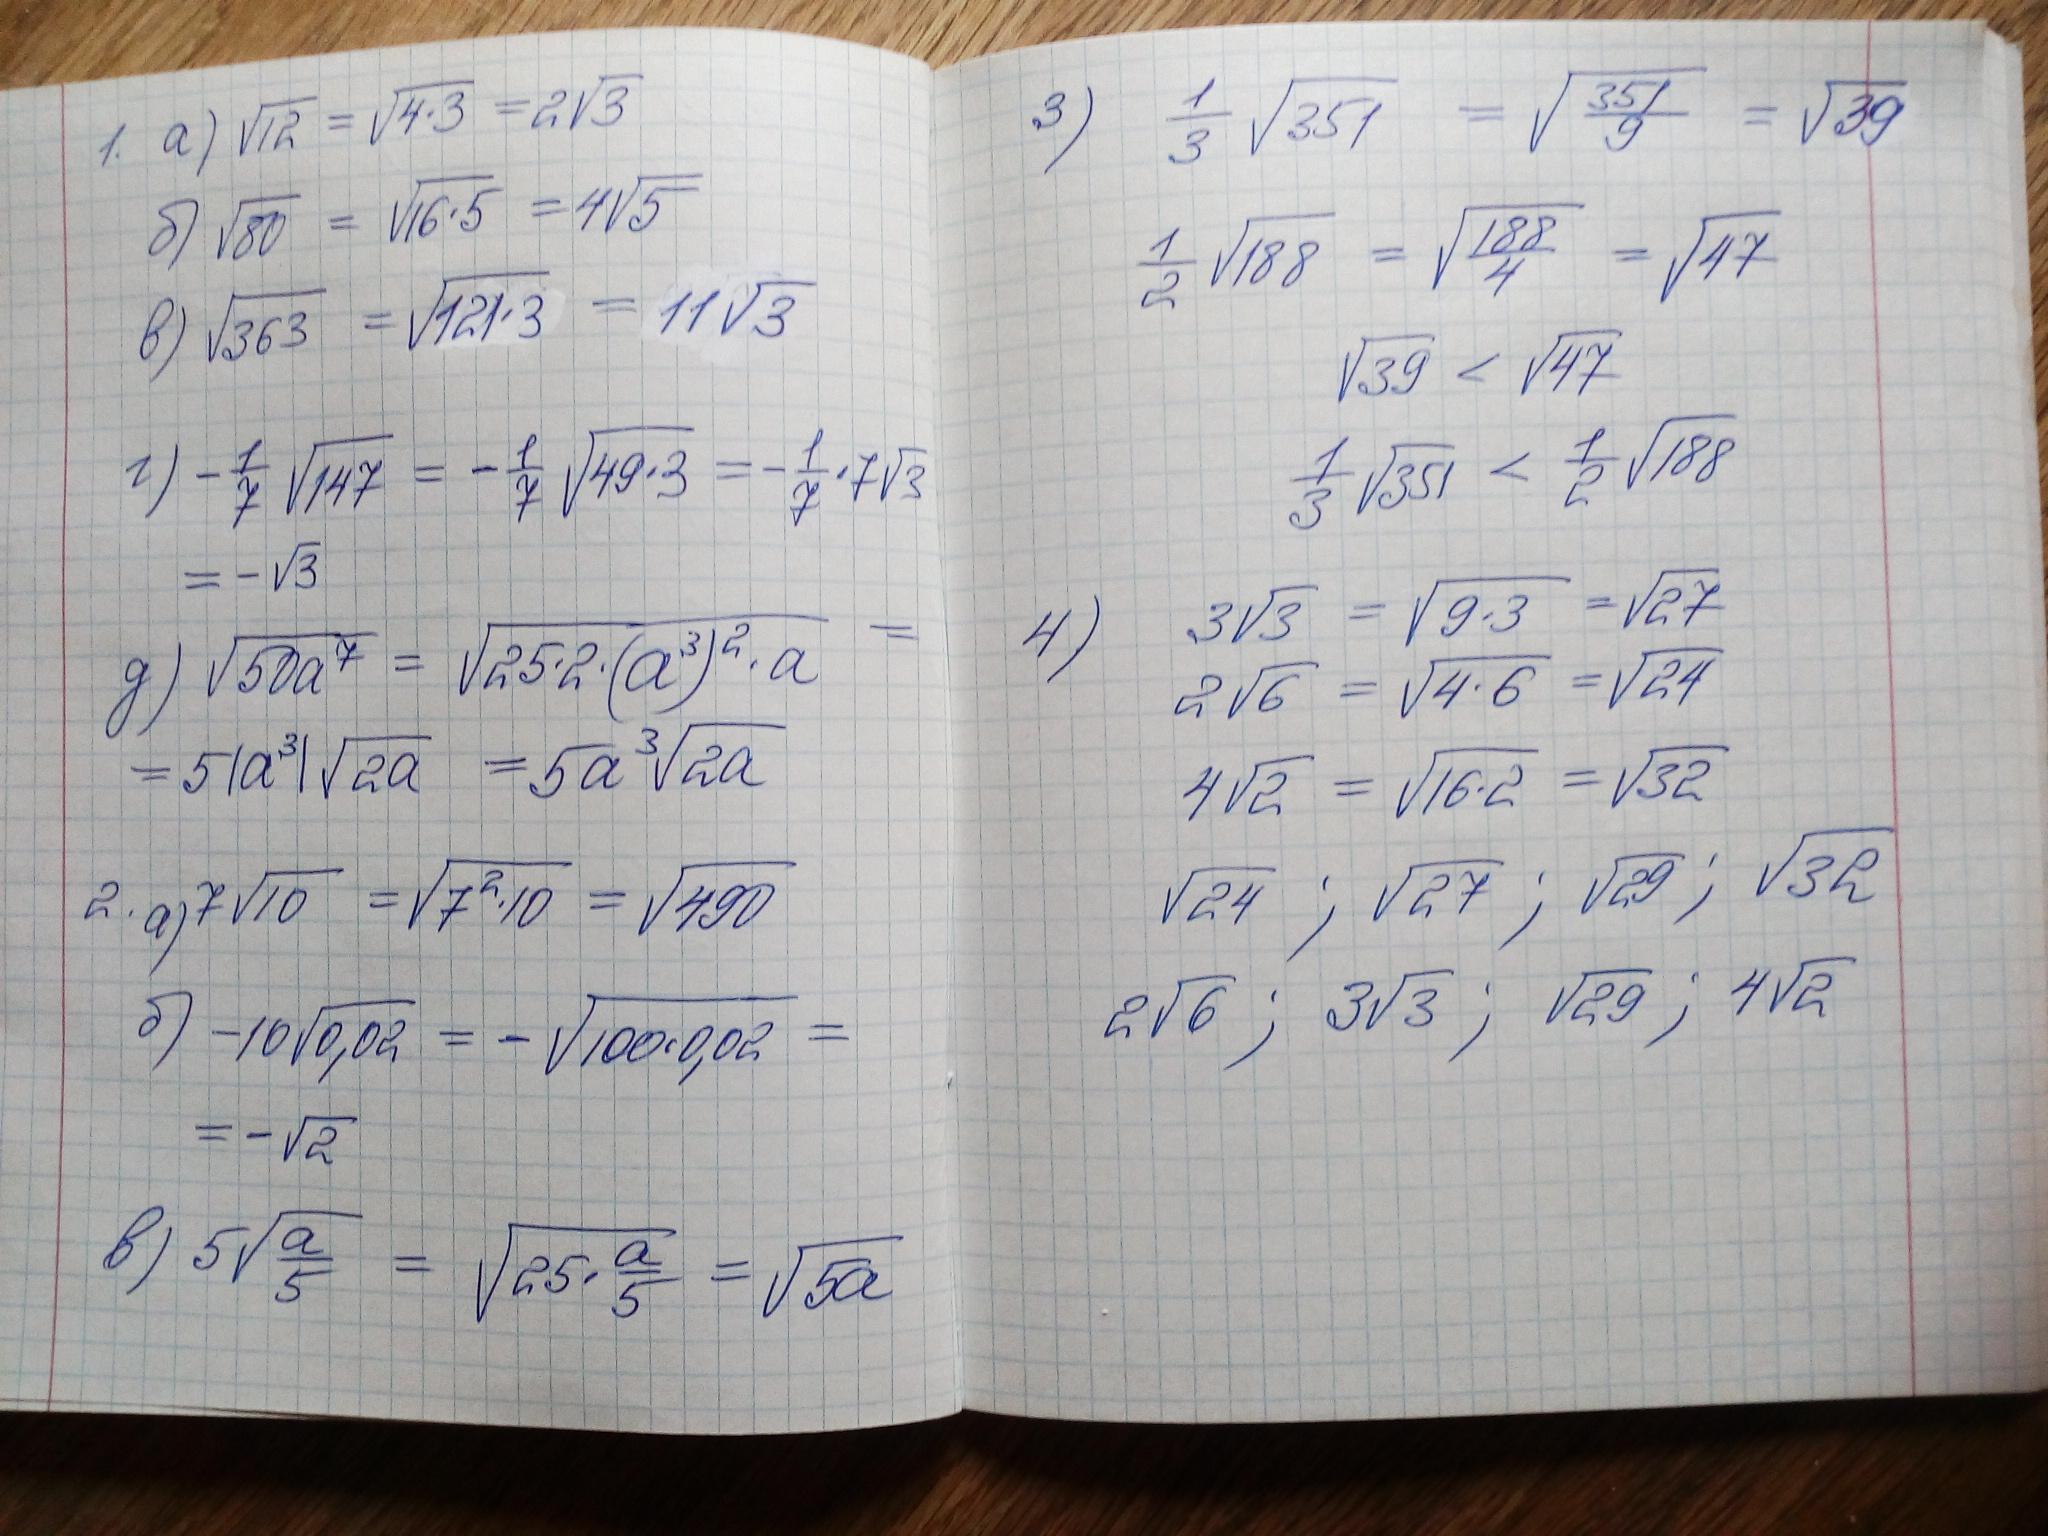 1. а) √12 = √4·3 = 2√3
б) √80 = √16·5 = 4√5
в) √363 = √121·3 = 11√3
г) -1/7 √147 = -1/7 √49·3 = -1/7·7√3
= -√3
д) √50a⁷ = √25·2·(a³)²·a =
= 5|a³|√2a = 5a³√2a
2. а) 7√10 = √7²·10 = √490
б) -10√0,02 = -√100·0,02 =
= -√2
в) 5√a/5 = √25·a/5 = √5a
3) 1/3 √351 = √351/9 = √39
1/2 √188 = √188/4 = √47
√39 < √47
1/3 √351 < 1/2 √188
4) 3√3 = √9·3 = √27
2√6 = √4·6 = √24
4√2 = √16·2 = √32
√24 ; √27 ; √29 ; √32
2√6 ; 3√3 ; √29 ; 4√2